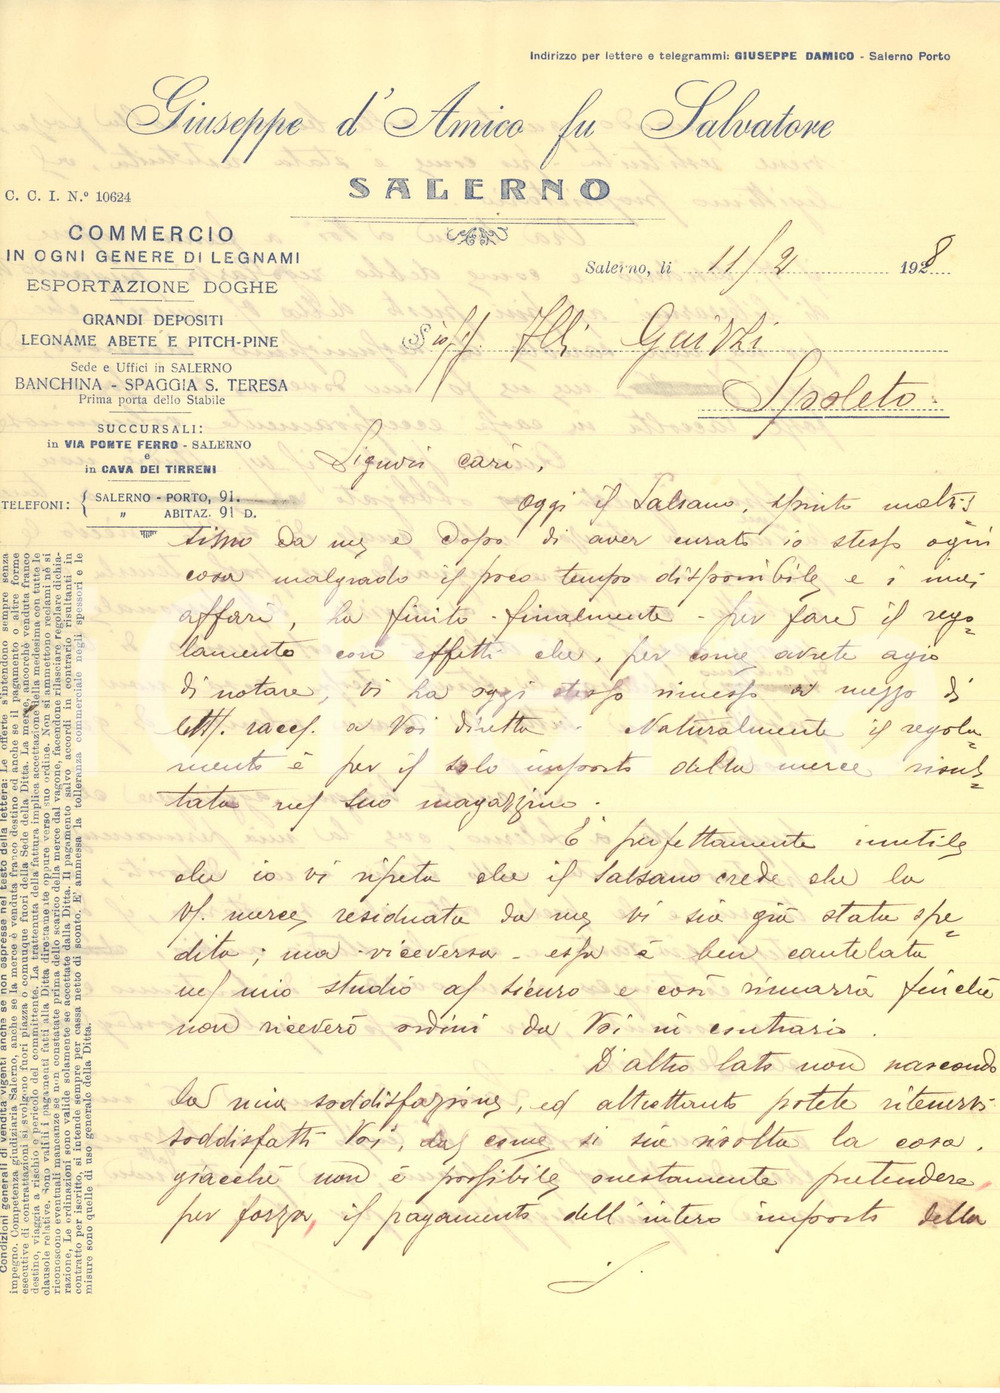 Indirizzo per lettere e telegrammi: GIUSEPPE DAMICO - Salerno Porto
Giuseppe d'Amico fu Salvatore
SALERNO
C. C. I. N.º 10624
COMMERCIO
IN OGNI GENERE DI LEGNAMI
ESPORTAZIONE DOGHE
GRANDI DEPOSITI
LEGNAME ABETE E PITCH-PINE
Sede e Uffici in SALERNO
BANCHINA - SPAGGIA S. TERESA
Prima porta dello Stabile
SUCCURSALI:
in VIA PONTE FERRO - SALERNO
e
in CAVA DEI TIRRENI
TELEFONI: { SALERNO - PORTO, 91.
" ABITAZ. 91 D.
Salerno, li 11/2 1928
Sigg. Flli
Spoleto
Signori cari,
Oggi il Salsano, spinto moltis
simo da me e dopo di aver curato io stesso ogni
cosa malgrado il poco tempo disponibile e i miei
affari, ha finito - finalmente - per fare il rego=
lamento con effetti che, per come avrete agio
di notare, vi ha oggi stesso rimesso a mezzo di
lett. racc. a Voi diretta. Naturalmente il regola=
mento è per il solo importo della merce risul=
tata nel suo magazzino.
E' perfettamente inutile
che io vi ripeta che il Salsano crede che la
Vs. merce residuata da me vi sia già stata spe=
dita; ma - viceversa - essa è ben cautelata
nel mio studio al sicuro e così rimarrà finché
non riceverò ordini da Voi in contrario.
D'altro lato non nascondo
la mia soddisfazione, ed altrettanto potete ritenervi
soddisfatti Voi, del come si sia risolta la cosa,
giacché non è possibile onestamente pretendere,
per forza, il pagamento dell'intero importo della
Condizioni generali di vendita vigenti anche se non espresse nel testo della lettera: Le offerte s'intendono sempre senza
impegno. Competenza giudiziaria Salerno, anche se la merce è venduta franco destino ed anche se il pagamento o altre forme
esecutive di contrattazioni si svolgono fuori piazza o comunque fuori della Sede della Ditta. La merce, ancorchè venduta franco
destino, viaggia a rischio e pericolo del committente. La trattenuta della fattura implica accettazione della medesima con tutte le
clausole relative. Sono validi i pagamenti fatti alla Ditta direttamente oppure verso suo ordine. Non si ammettono reclami nè si
riconoscono eventuali mancanze se non constatate prima dello scarico della merce dal vagone, facendone rilasciare regolare dichia-
razione, Le ordinazioni sono valide solamente se accettate dalla Ditta. Il pagamento salvo accordi in contrario risultanti in
contratto per iscritto, si intende sempre per cassa netto di sconto. E' ammessa la tolleranza commerciale negli spessori e le
misure sono quelle di uso generale della Ditta.